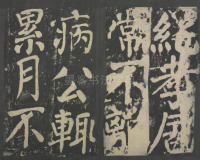 純孝居
常不
病公輒
累月不